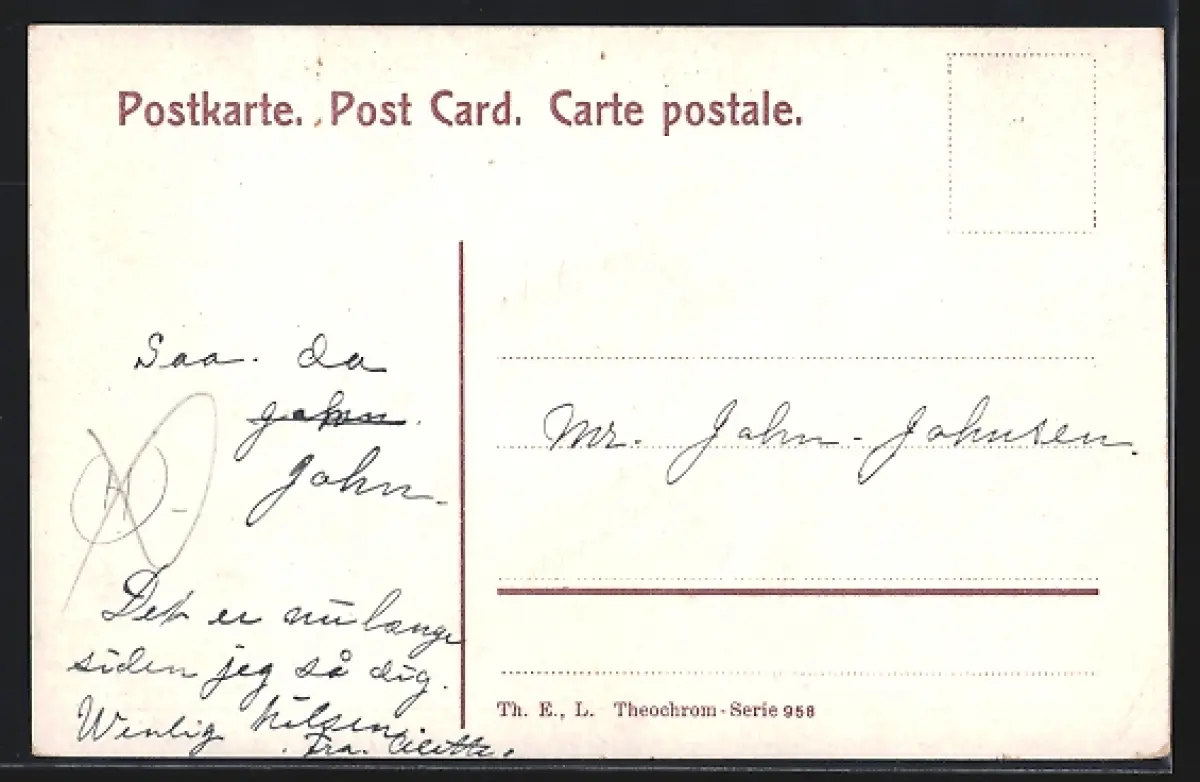 Postkarte. Post Card. Carte postale.
Saa. da
John.
John.
Det er nu lange
siden jeg så dig.
Wenlig hilsen.
Fra.
Mr. John. Johnsen.
Th. E., L. Theochrom-Serie 958